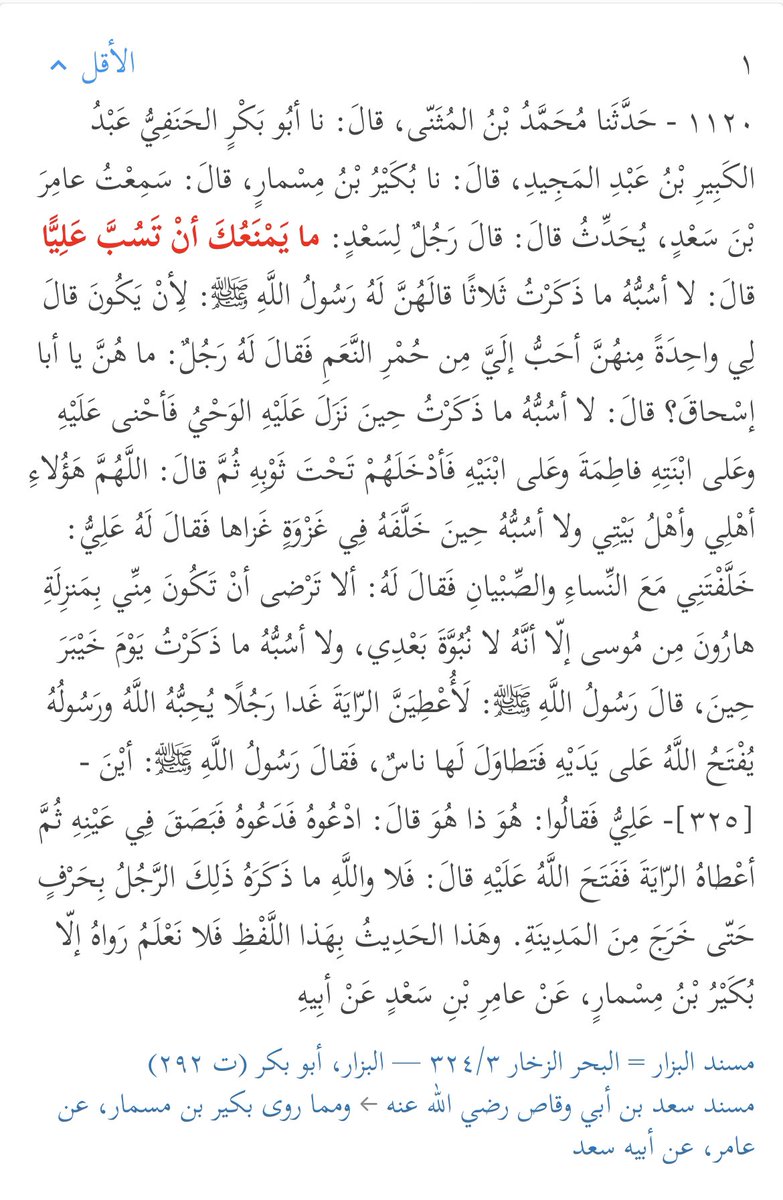 ١
الأقل
١١٢٠ - حَدَّثَنا مُحَمَّدُ بْنُ المُثَنّى، قالَ: نا أبُو بَكْرٍ الحَنَفِيُّ عَبْدُ
الكَبِيرِ بْنُ عَبْدِ المَجِيدِ، قالَ: نا بُكَيْرُ بْنُ مِسْمارٍ، قالَ: سَمِعْتُ عامِرَ
بْنَ سَعْدٍ، يُحَدِّثُ قالَ: قالَ رَجُلٌ لِسَعْدٍ: ما يَمْنَعُكَ أنْ تَسُبَّ عَلِيًّا
قالَ: لا أسُبُّهُ ما ذَكَرْتُ ثَلاثًا قالَهُنَّ لَهُ رَسُولُ اللَّهِ ﷺ: لِأنْ يَكُونَ قالَ
لِي واحِدَةً مِنهُنَّ أحَبُّ إلَيَّ مِن حُمْرِ النَّعَمِ فَقالَ لَهُ رَجُلٌ: ما هُنَّ يا أبا
إسْحاقَ؟ قالَ: لا أسُبُّهُ ما ذَكَرْتُ حِينَ نَزَلَ عَلَيْهِ الوَحْيُ فَأحْنى عَلَيْهِ
وعَلى ابْنَتِهِ فاطِمَةَ وعَلى ابْنَيْهِ فَأدْخَلَهُمْ تَحْتَ ثَوْبِهِ ثُمَّ قالَ: اللَّهُمَّ هَؤُلاءِ
أهْلِي وأهْلُ بَيْتِي ولا أسُبُّهُ حِينَ خَلَّفَهُ فِي غَزْوَةٍ غَزاها فَقالَ لَهُ عَلِيُّ:
خَلَّفْتَنِي مَعَ النِّساءِ والصِّبْيانِ فَقالَ لَهُ: ألا تَرْضى أنْ تَكُونَ مِنِّي بِمَنزِلَةِ
هارُونَ مِن مُوسى إلّا أنَّهُ لا نُبُوَّةَ بَعْدِي، ولا أسُبُّهُ ما ذَكَرْتُ يَوْمَ خَيْبَرَ
حِينَ، قالَ رَسُولُ اللَّهِ ﷺ: لَأُعْطِيَنَّ الرّايَةَ غَدا رَجُلًا يُحِبُّهُ اللَّهُ ورَسُولُهُ
يُفْتَحُ اللَّهُ عَلى يَدَيْهِ فَتَطاوَلَ لَها ناسٌ، فَقالَ رَسُولُ اللَّهِ ﷺ: أيْنَ -
[٣٢٥]- عَلِيُّ فَقالُوا: هُوَ ذا هُوَ قالَ: ادْعُوهُ فَدَعُوهُ فَبَصَقَ فِي عَيْنِهِ ثُمَّ
أعْطاهُ الرّايَةَ فَفَتَحَ اللَّهُ عَلَيْهِ قالَ: فَلا واللَّهِ ما ذَكَرَهُ ذَلِكَ الرَّجُلُ بِحَرْفٍ
حَتّى خَرَجَ مِنَ المَدِينَةِ. وهَذا الحَدِيثُ بِهَذا اللَّفْظِ فَلا نَعْلَمُ رَواهُ إلّا
بُكَيْرُ بْنُ مِسْمارٍ، عَنْ عامِرِ بْنِ سَعْدٍ عَنْ أبِيهِ
مسند البزار = البحر الزخار ٣/‏٣٢٤ — البزار، أبو بكر (ت ٢٩٢)
مسند سعد بن أبي وقاص رضي الله عنه ← ومما روى بكير بن مسمار، عن
عامر، عن أبيه سعد